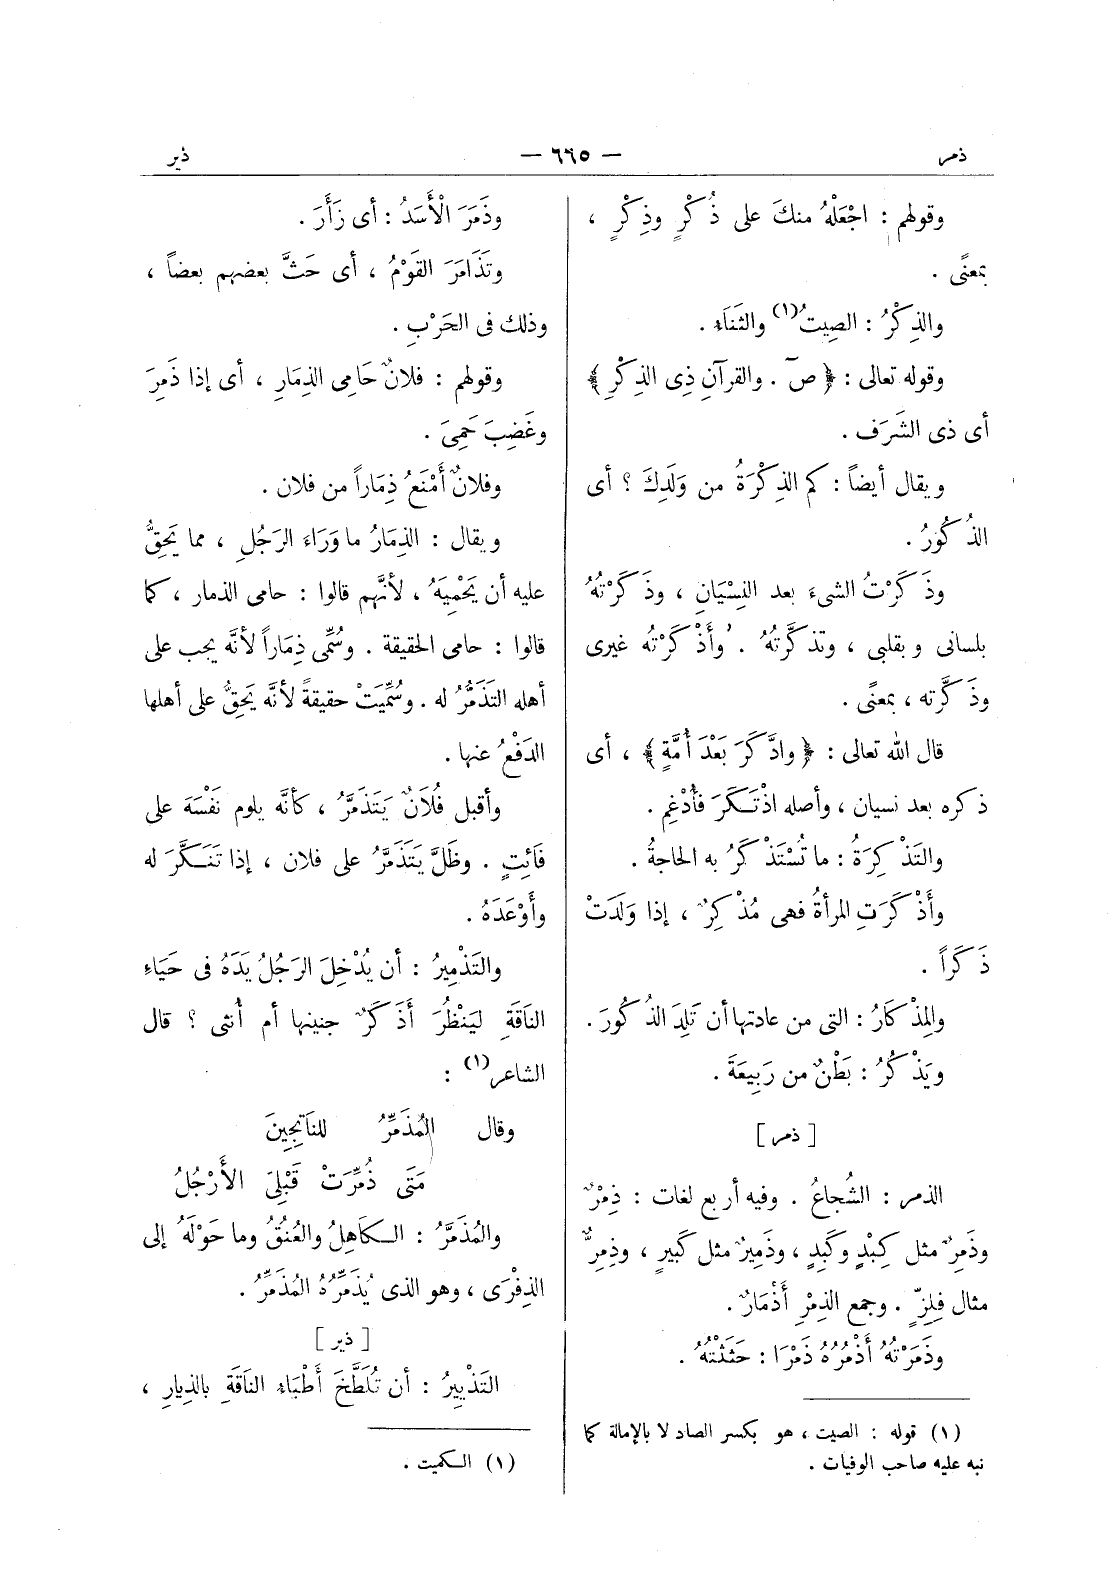 ذمر
— ٦٦٥ —
ذير
وقولهم : اجْعَلْهُ منكَ على ذُكْرٍ وذِكْرٍ ،
بمعنًى .
والذِكْرُ : الصِيتُ(١) والثَنَاء .
وقوله تعالى : ﴿ صٓ . والقرآنِ ذِى الذِكْرِ ﴾
أى ذى الشَرَف .
ويقال أيضاً : كم الذِكْرَةُ من وَلَدِكَ ؟ أى
الذُكُورُ .
وذَكَرْتُ الشىءَ بعد النِسْيَانِ ، وذَكَرْتُهُ
بلسانى وبقلبى ، وتذكَّرتُهُ . وأَذْكَرْتُه غيرى
وذَكَّرته ، بمعنًى .
قال الله تعالى : ﴿ وادَّكَرَ بَعْدَ أُمَّةٍ ﴾ ، أى
ذكره بعد نسيان ، وأصله اذْتَكَرَ فأُدْغِم .
والتَذْكِرَةُ : ما تُسْتَذْكَرُ به الحاجةُ .
وأَذْكَرَتِ المرأةُ فهى مُذْكِرٌ ، إذا وَلَدَتْ
ذَكَراً .
والمِذْكَارُ : التى من عادتها أن تَلِدَ الذُكُورَ .
ويَذْكُرُ : بَطْنٌ من رَبِيعَةَ .
[ ذمر ]
الذمر : الشُجاعُ . وفيه أربع لغات : ذِمْرٌ
وذَمِرٌ مثل كِبْدٍ وكَبِدٍ ، وذَمِيرٌ مثل كَبيرٍ ، وذِمِرٌّ
مثال فِلِزٍّ . وجمع الذِمْرِ أَذْمَارٌ .
وذَمَرْتُهُ أَذْمُرُهُ ذَمْرًا : حَثَثْتُهُ .
(١) قوله : الصيت ، هو بكسر الصاد لا بالإمالة كما
نبه عليه صاحب الوفيات .
وذَمَرَ الْأَسَدُ : أى زَأَرَ .
وتَذَامَرَ القَوْمُ ، أى حَثَّ بعضهم بعضاً ،
وذلك فى الحَرْبِ .
وقولهم : فلانٌ حَامِى الذِمَارِ ، أى إذا ذَمِرَ
وغَضِبَ حَمِىَ .
وفلانٌ أَمْنَعُ ذِمَاراً من فلان .
ويقال : الذِمَارُ ما وَرَاءَ الرَجُلِ ، مما يَحِقُّ
عليه أن يَحْمِيَهُ ، لأنَّهم قالوا : حامى الذمار ، كما
قالوا : حامى الحقيقة . وسُمِّى ذِمَاراً لأنَّه يجب على
أهله التَذَمُّرُ له . وسُمِّيَتْ حقيقةً لأنَّه يَحِقُّ على أهلها
الدَفْعُ عنها .
وأقبل فُلَانٌ يَتَذَمَّرُ ، كأنَّه يلوم نَفْسَهَ على
فَائِتٍ . وظَلَّ يَتَذَمَّرُ على فلان ، إذا تَنَكَّرَ له
وأَوْعَدَهُ .
والتَذْمِيرُ : أن يُدْخِلَ الرَجُلُ يَدَهُ فى حَيَاءِ
النَاقَةِ لِيَنْظُرَ أَذَكَرٌ جنينها أم أُنثى ؟ قال
الشاعر(١) :
وقال المُذَمِّرُ للنَاتِجِينَ
مَتَى ذُمِّرَتْ قَبْلِىَ الأَرْجُلُ
والمُذَمَّرُ : الكَاهِلُ والعُنُقُ وما حَوْلَهُ إلى
الذِفْرَى ، وهو الذى يُذَمِّرُهُ المُذَمِّرُ .
[ ذير ]
التَذْيِيرُ : أن تُلَطَّخَ أَطْبَاء النَاقَةِ بالذِيارِ ،
(١) الكميت .